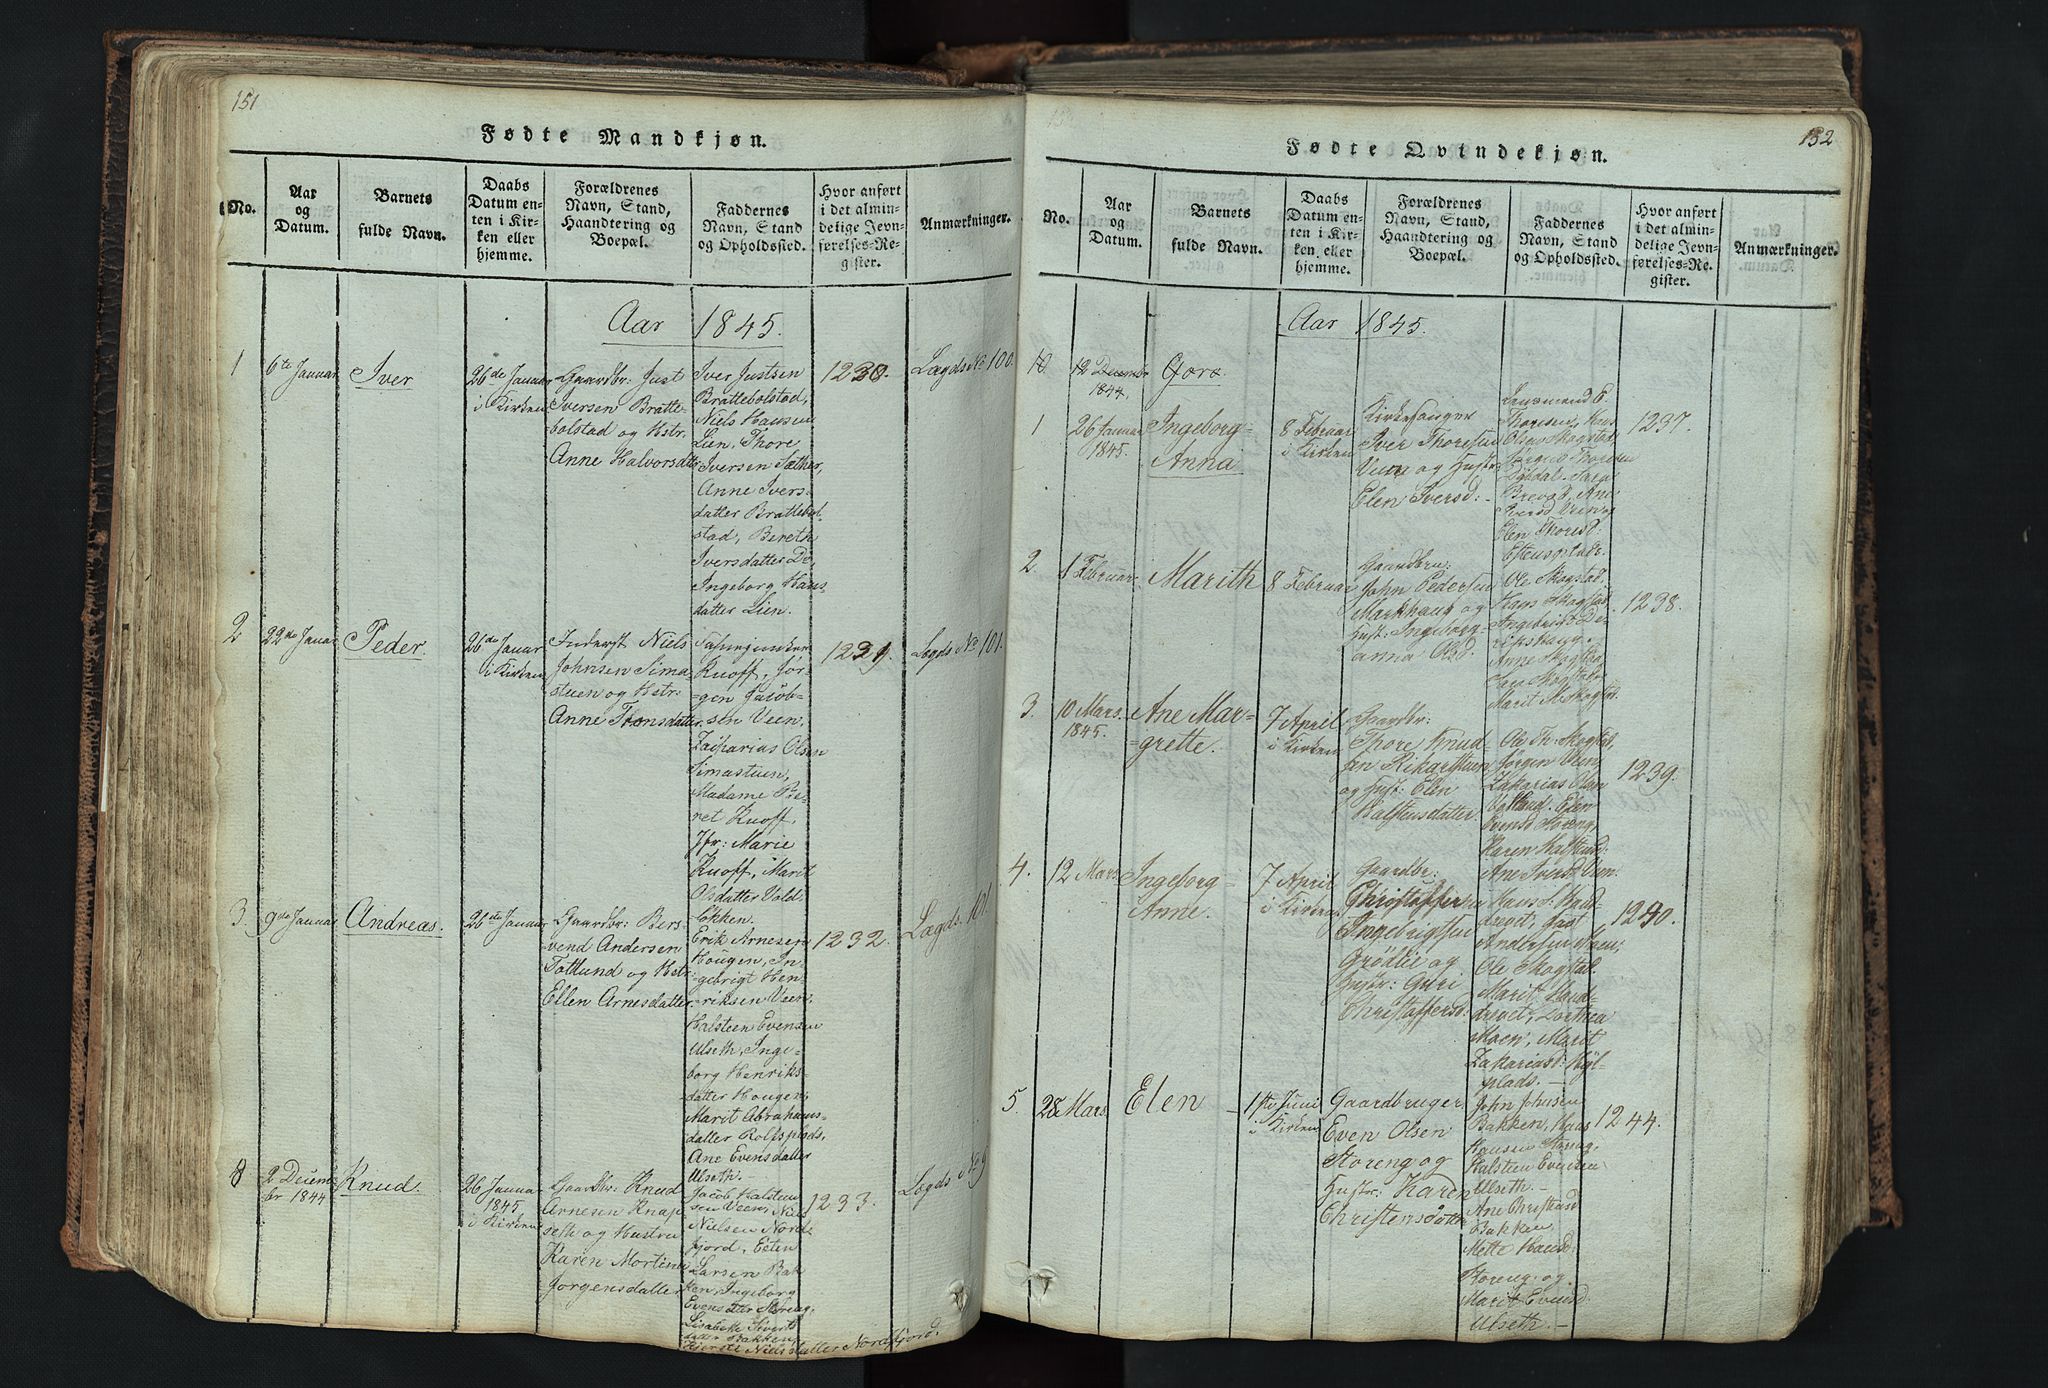 151
Fødte Mandkjøn.
No.
Aar
og
Datum.
Barnets
fulde Navn.
Daabs
Datum en-
ten i Kir-
ken eller
hjemme.
Forældrenes
Navn, Stand,
Haandtering og
Boepæl.
Faddernes
Navn, Stand
og Opholdssted.
Hvor anført
i det almin-
delige Jevn-
førelses-Re-
gister.
Anmærkninger.
Aar 1845.
1
6te Januar
Iver
26de Januar
i Kirken
Gaardbr: Just
Iversen Bratte-
bolstad og Hstr.
Anne Halvorsdatter
Iver Justsen
Brattebolstad,
Niels Hansen
Lien, Thore
Iversen Sæther,
Anne Ivers-
datter Brattebol-
stad, Bereth
Iversdatter Do,
Ingeborg Hans
datter Lien.
1230.
Lægds No 100.
2
22de Januar
Peder.
26de Januar
i Kirken
Inderst Niels
Johnsen Sima-
stuen og Hstr:
Anne Tronsdatter
Knoff, Jør-
gen Jacob-
sen Veen.
Zacharias Olsen
Simastuen,
Madame Be-
ret Knoff,
Jfr: Marie
Knoff, Marit
Olsdatter Vold.
1231
Lægds No 101.
3
9de Januar
Andreas.
26de Januar
Gaardbr: Ber-
svend Andersen
Totlund og Hstr:
Ellen Arnesdatter
Løkken.
Erik Arnesen
Hougen, In-
gebrigt Hen-
riksen Veen,
Halsteen Evensen
Ulseth, Inge-
borg Henriks-
datter Hougen,
Marit Abrahams-
datter Rolfsplads,
Ane Evensdatter
Ulseth.
1232.
Lægds 101.
8
2 Decem-
br 1844
Knud.
26 Januar
1845
i Kirken
Gaardbr: Knud
Arnesen Knap
seth og Hustru
Karen Mortine
Jørgensdatter
Jacob Halsteen
sen Veen, Niels
Nielsen Nord-
fjord, Esten
Larsen Bak
ken, Ingeborg
Evensdatter Storeng,
Lisabeth Siverts
datter Bakken,
Kjersti Nielsdatter Nordfjord.
1233.
Lægds No 9
152
Fødte Qvindekjøn.
No.
Aar
og
Datum.
Barnets
fulde Navn.
Daabs
Datum en-
ten i Kir-
ken eller
hjemme.
Forældrenes
Navn, Stand,
Haandtering og
Boepæl.
Faddernes
Navn, Stand
og Opholdssted.
Hvor anført
i det almin-
delige Jevn-
førelses-Re-
gister.
Anmærkninger.
Aar 1845.
10
12 December
1844.
Goro
1
26 Januar
1845.
Ingeborg-
Anna
8 Februar
i Kirken
Kirkesanger
Iver Thoresen
Veen og Hustr
Elen Iversd:
Lensmand E
Thoresen, Hans
Olsen Skogstad,
Jørgen Thoresen
Ane
Iversd Veen og
Elen Thoresd.
Estensstad.
1237.
2
1 Februar
Marith
8 Februar
Gaardbru:
John Pedersen
Markhaug og
Hust: Ingeborg-
anna Olsd.
Ole Skogstad.
Hans Skogstad
Anne Skogstad,
Marit Skogstad.
1238.
3.
10 Mars.
1845.
Ane Mar-
grette.
7 April
i Kirken
Gaardbr:
Thore Knud-
sen Rikarstuen
og Hust: Elen
Halstensdatter.
Ole Th: Skogstad,
Jørgen Veen,
Zakarias Olsen
Elen
Evensd Storeng,
Karen Halstensd:
Ane Iversd Veen.
1239.
4.
12 Mars
Ingeborg
Anne.
7 April
i Kirken
Gaardbr:
Christoffer
Ingebrigtsen
Grødlie og
Hustr: Guri
Christoffersd.
Andersen Moen,
Ole Skogstad.
Marit Land-
drevet, Dorthea
Moen, Marit
Zakariasd:
plads.
1240.
5.
28 Mars.
Elen
1ste Juni
i Kirken
Gaardbruger
Even Olsen
Storeng og
Hustr: Karen
Christensdatter
John Johnsen
Bakken, Hans
Hansen Storeng,
Halsteen Evensen
Ulseth.
Ane Christiansd
Bakken
Mette Hansd:
Storeng og
Marit Evensd:
Ulseth.
1244.